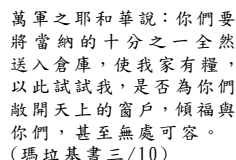 萬軍之耶和華說：你們要
將當納的十分之一全然
送入倉庫，使我家有糧，
以此試試我，是否為你們
敞開天上的窗戶，傾福與
你們，甚至無處可容。
(瑪拉基書三/10)